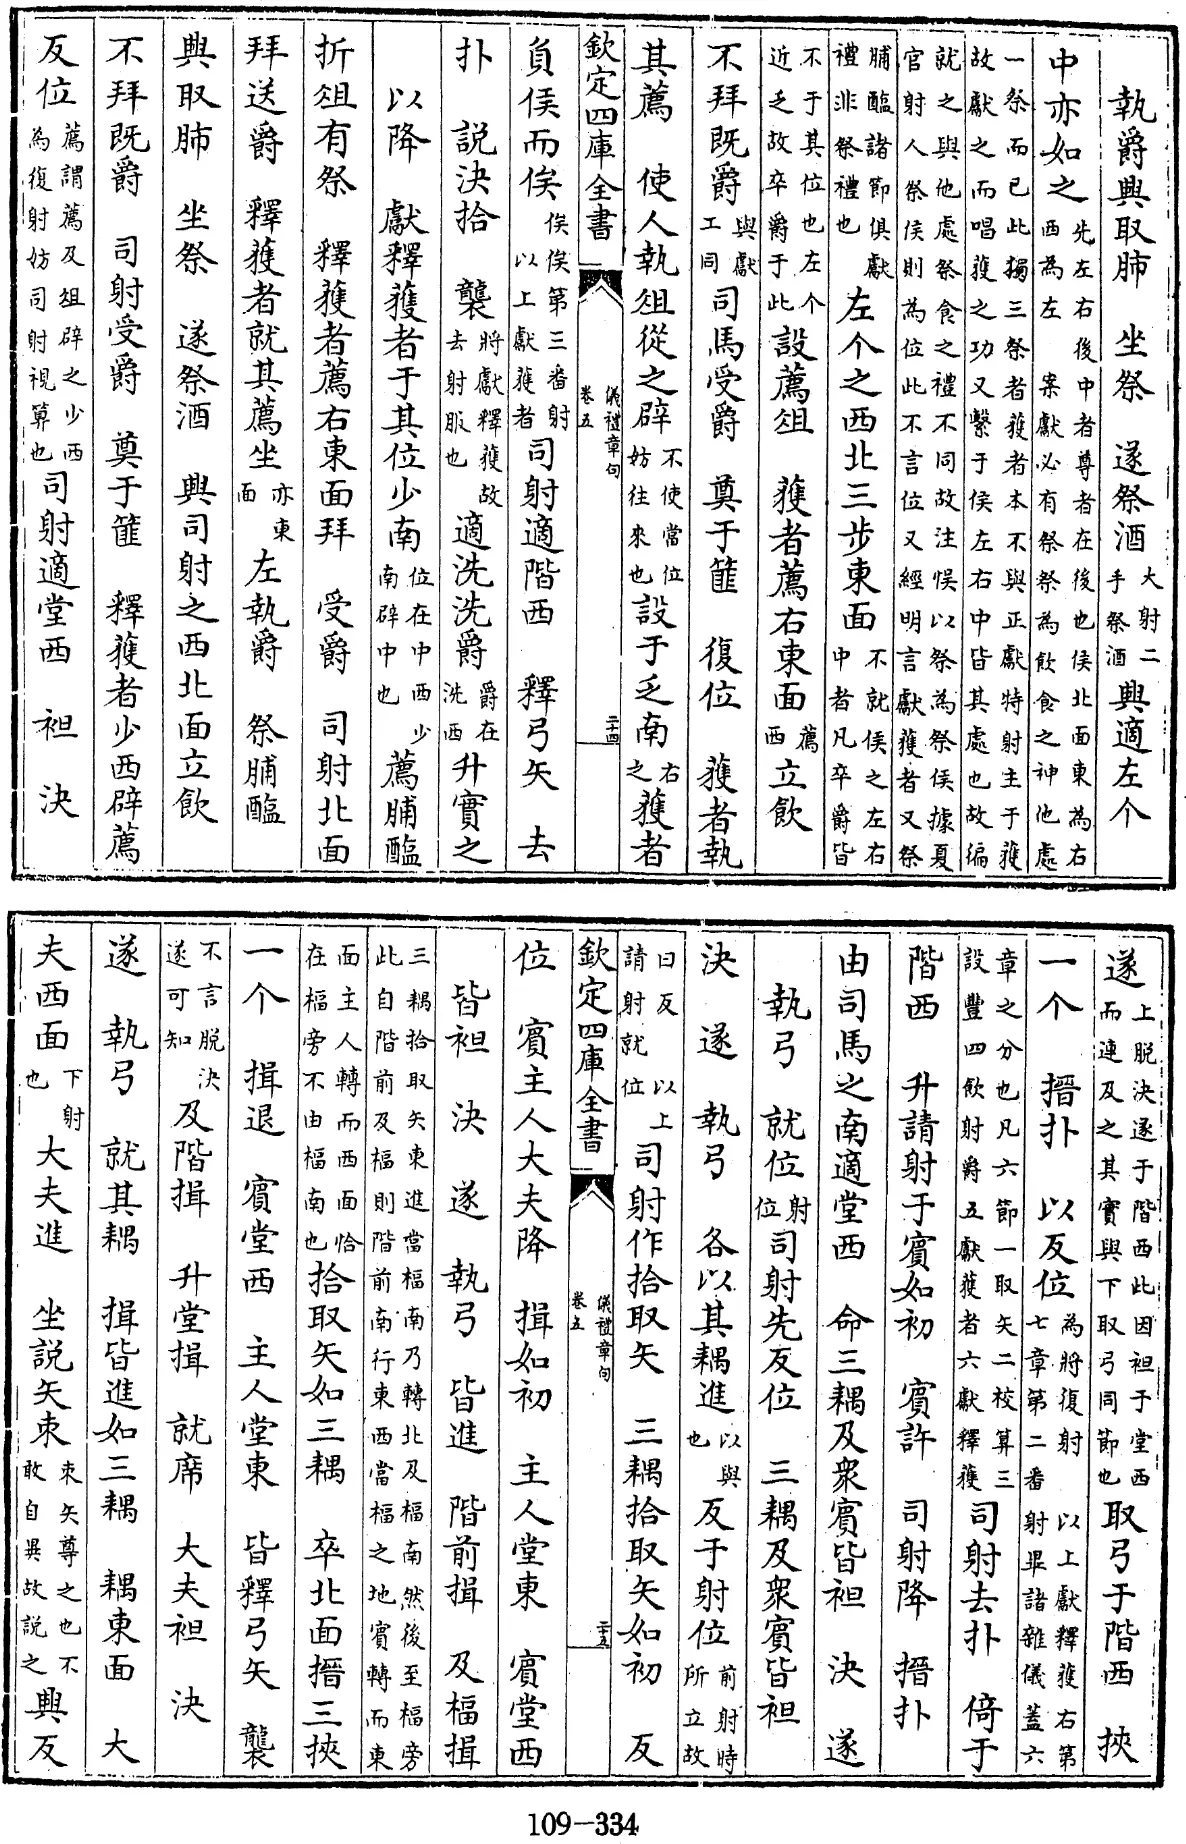 執爵興取肺 坐祭 遂祭酒大射二手祭酒興適左个
中亦如之先左右後中者尊者在後也侯北面東為右西為左 案獻必有祭祭為飲食之神他處
一祭而已此獨三祭者獲者本不與正獻特射主于獲故獻之而唱獲之功又繫于侯左右中皆其處也故徧
就之與他處祭食之禮不同故注悮以祭為祭侯據夏官射人祭侯則為位此不言位又經明言獻獲者又祭
脯醢諸節俱獻禮非祭禮也左个之西北三步東面不就侯之左右中者凡卒爵皆
不于其位也左个近乏故卒爵于此設薦俎 獲者薦右東面薦西立飲
不拜既爵與獻工同司馬受爵 奠于篚 復位 獲者執
其薦 使人執俎從之辟不使當位妨往來也設于乏南右之獲者
欽定四庫全書 儀禮章句 卷五 二十四
負侯而俟俟俟第三番射 以上獻獲者司射適階西 釋弓矢 去
扑 説決拾 襲將獻釋獲故去射服也適洗洗爵爵在洗西升實之
以降 獻釋獲者于其位少南位在中西少南辟中也薦脯醢
折俎有祭 釋獲者薦右東面拜 受爵 司射北面
拜送爵 釋獲者就其薦坐亦東面左執爵 祭脯醢
興取肺 坐祭 遂祭酒 興司射之西北面立飲
不拜既爵 司射受爵 奠于篚 釋獲者少西辟薦
反位薦謂薦及俎辟之少西為復射妨司射視算也司射適堂西 袒 決
遂上脱決遂于階西此因袒于堂西而連及之其實與下取弓同節也取弓于階西 挾
一个 搢扑 以反位為將復射 以上獻釋獲右第七章第二番射畢諸雜儀蓋六
章之分也凡六節一取矢二校算三設豐四飲射爵五獻獲者六獻釋獲司射去扑 倚于
階西 升請射于賓如初 賓許 司射降 搢扑
由司馬之南適堂西 命三耦及衆賓皆袒 決 遂
執弓 就位射位司射先反位 三耦及衆賓皆袒
決 遂 執弓 各以其耦進以與也反于射位前射時所立故
曰反 以上請射就位司射作拾取矢 三耦拾取矢如初 反
欽定四庫全書 儀禮章句 卷五 二十五
位 賓主人大夫降 揖如初 主人堂東 賓堂西
皆袒 決 遂 執弓 皆進 階前揖 及楅揖
三耦拾取矢東進當楅南乃轉北及楅南然後至楅旁此自階前及楅則階前南行東西當楅之地賓轉而東
面主人轉而西面恰在楅旁不由楅南也拾取矢如三耦 卒北面搢三挾
一个 揖退 賓堂西 主人堂東 皆釋弓矢 襲
不言脱決遂可知及階揖 升堂揖 就席 大夫袒 決
遂 執弓 就其耦 揖皆進如三耦 耦東面 大
夫西面下射也大夫進 坐説矢束束矢尊之也不敢自異故説之興反
109-334